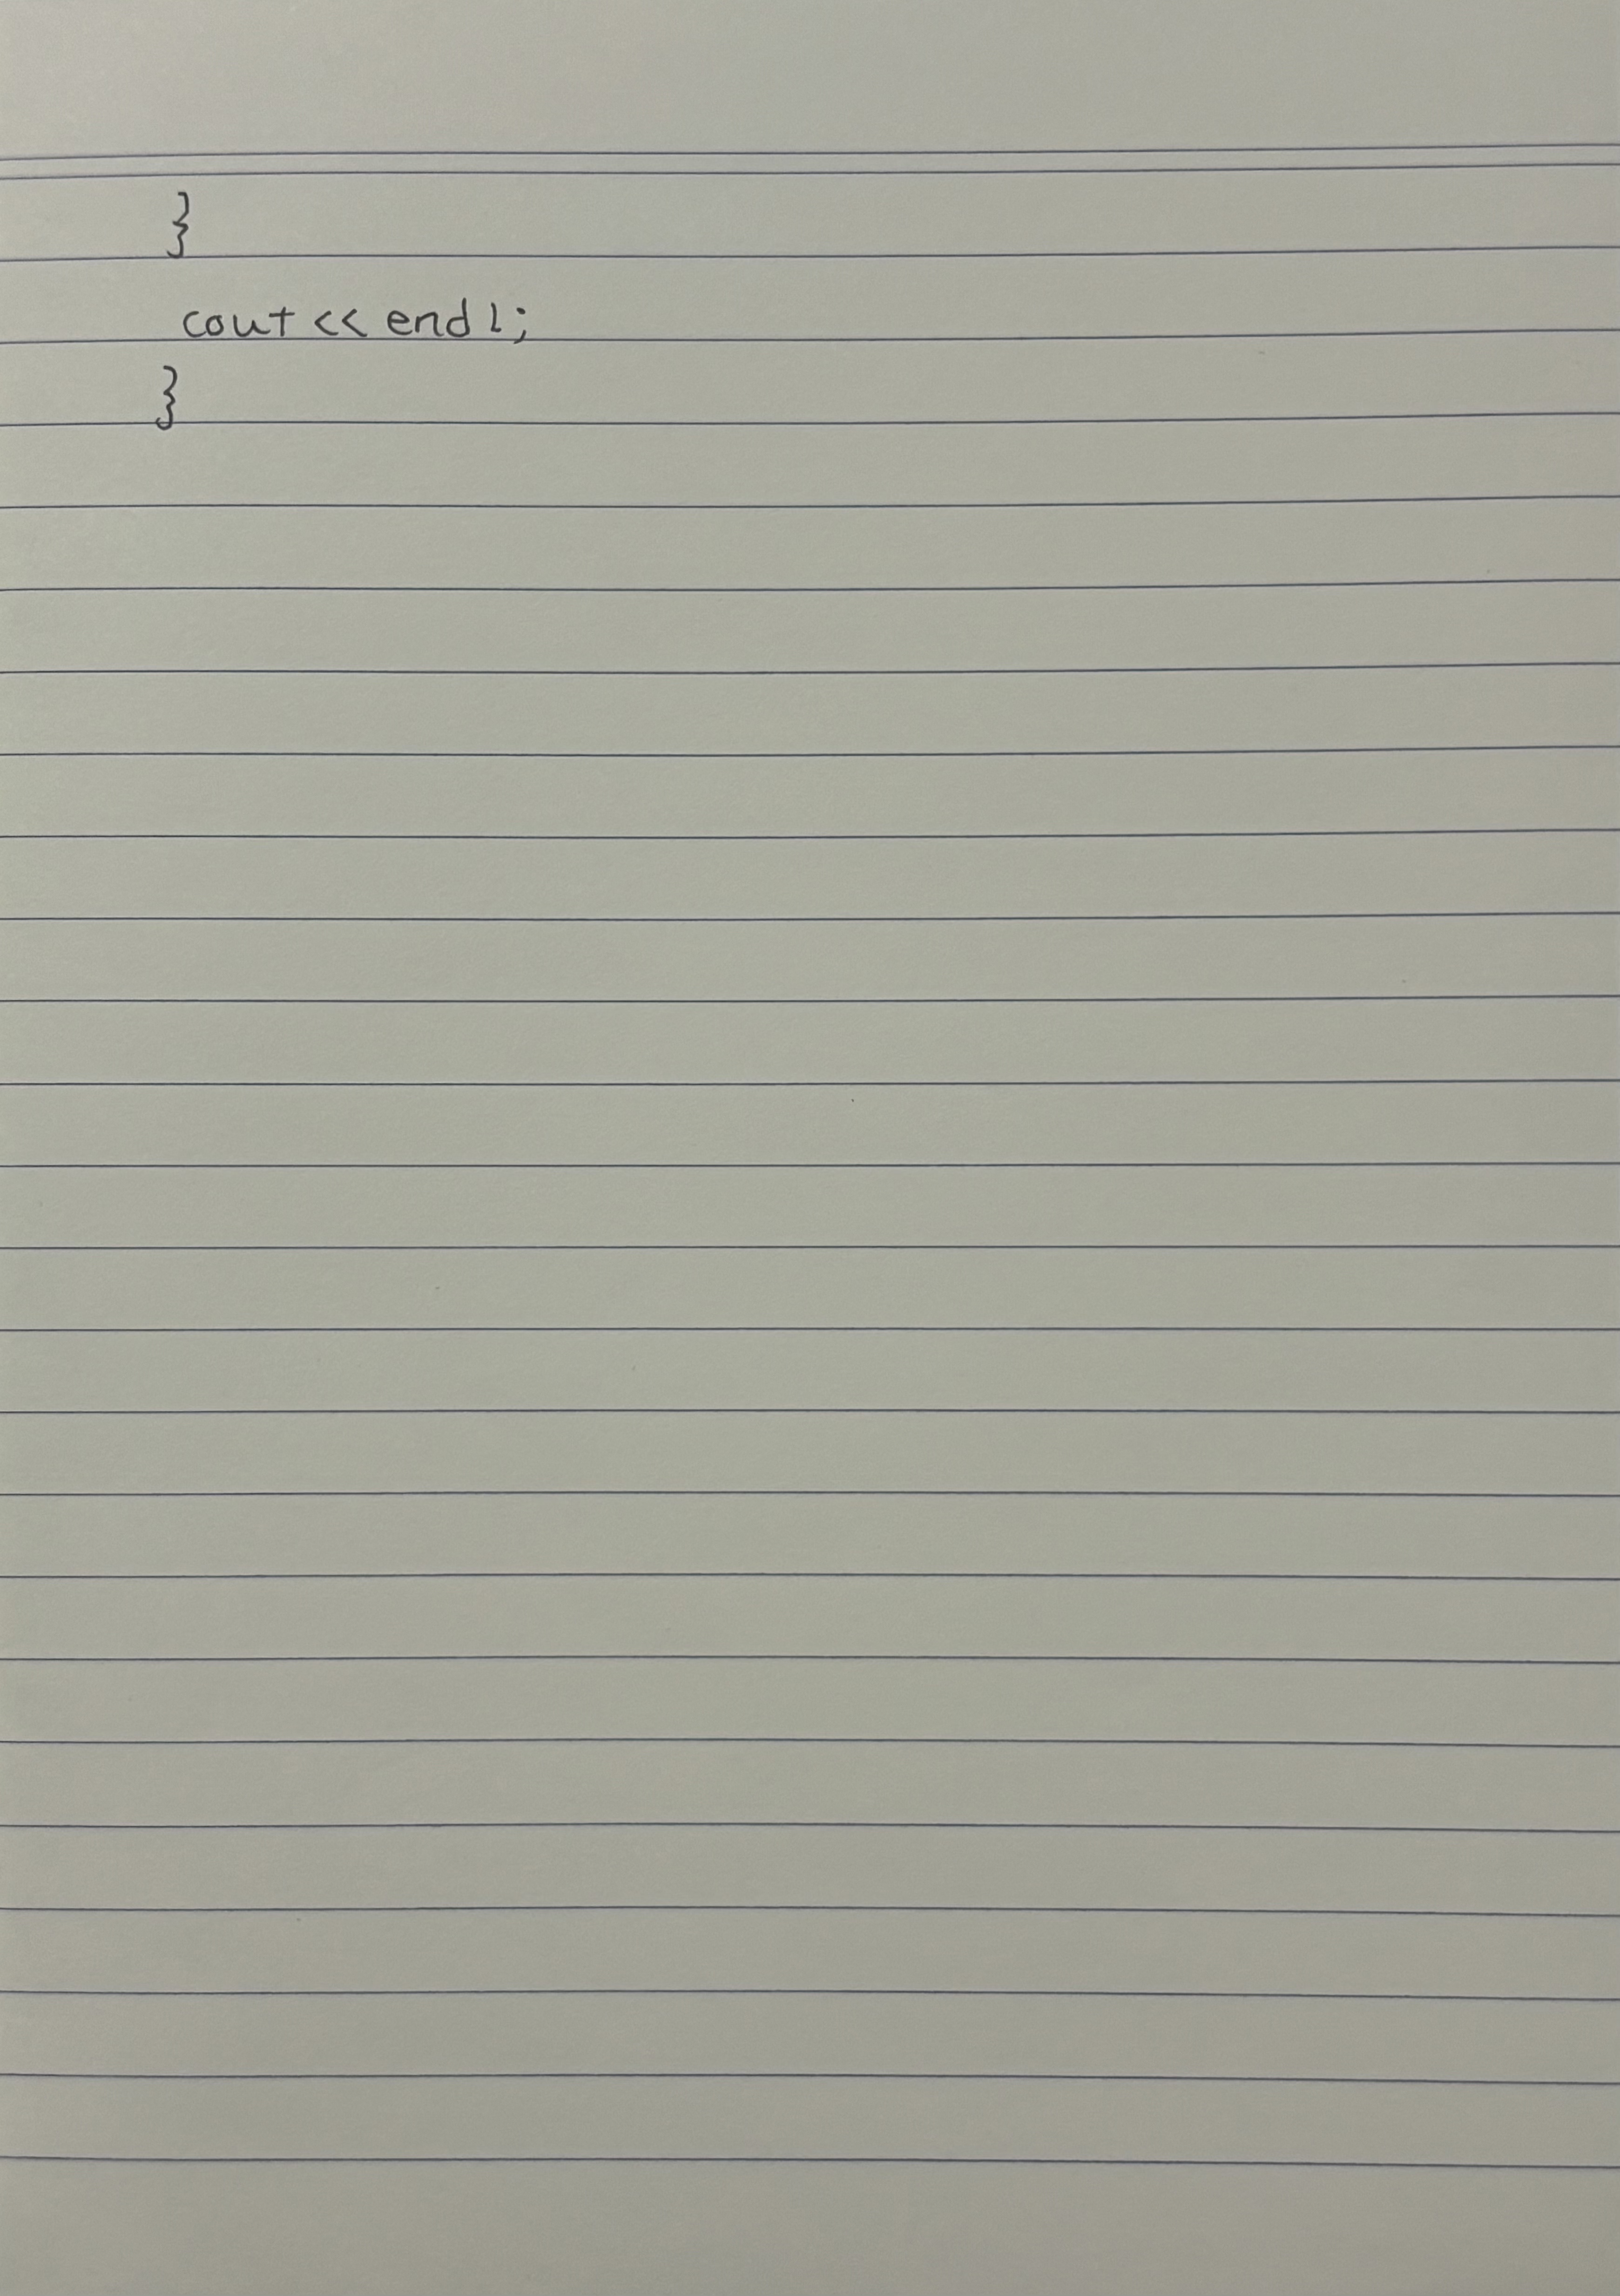 }
cout << endl;
}